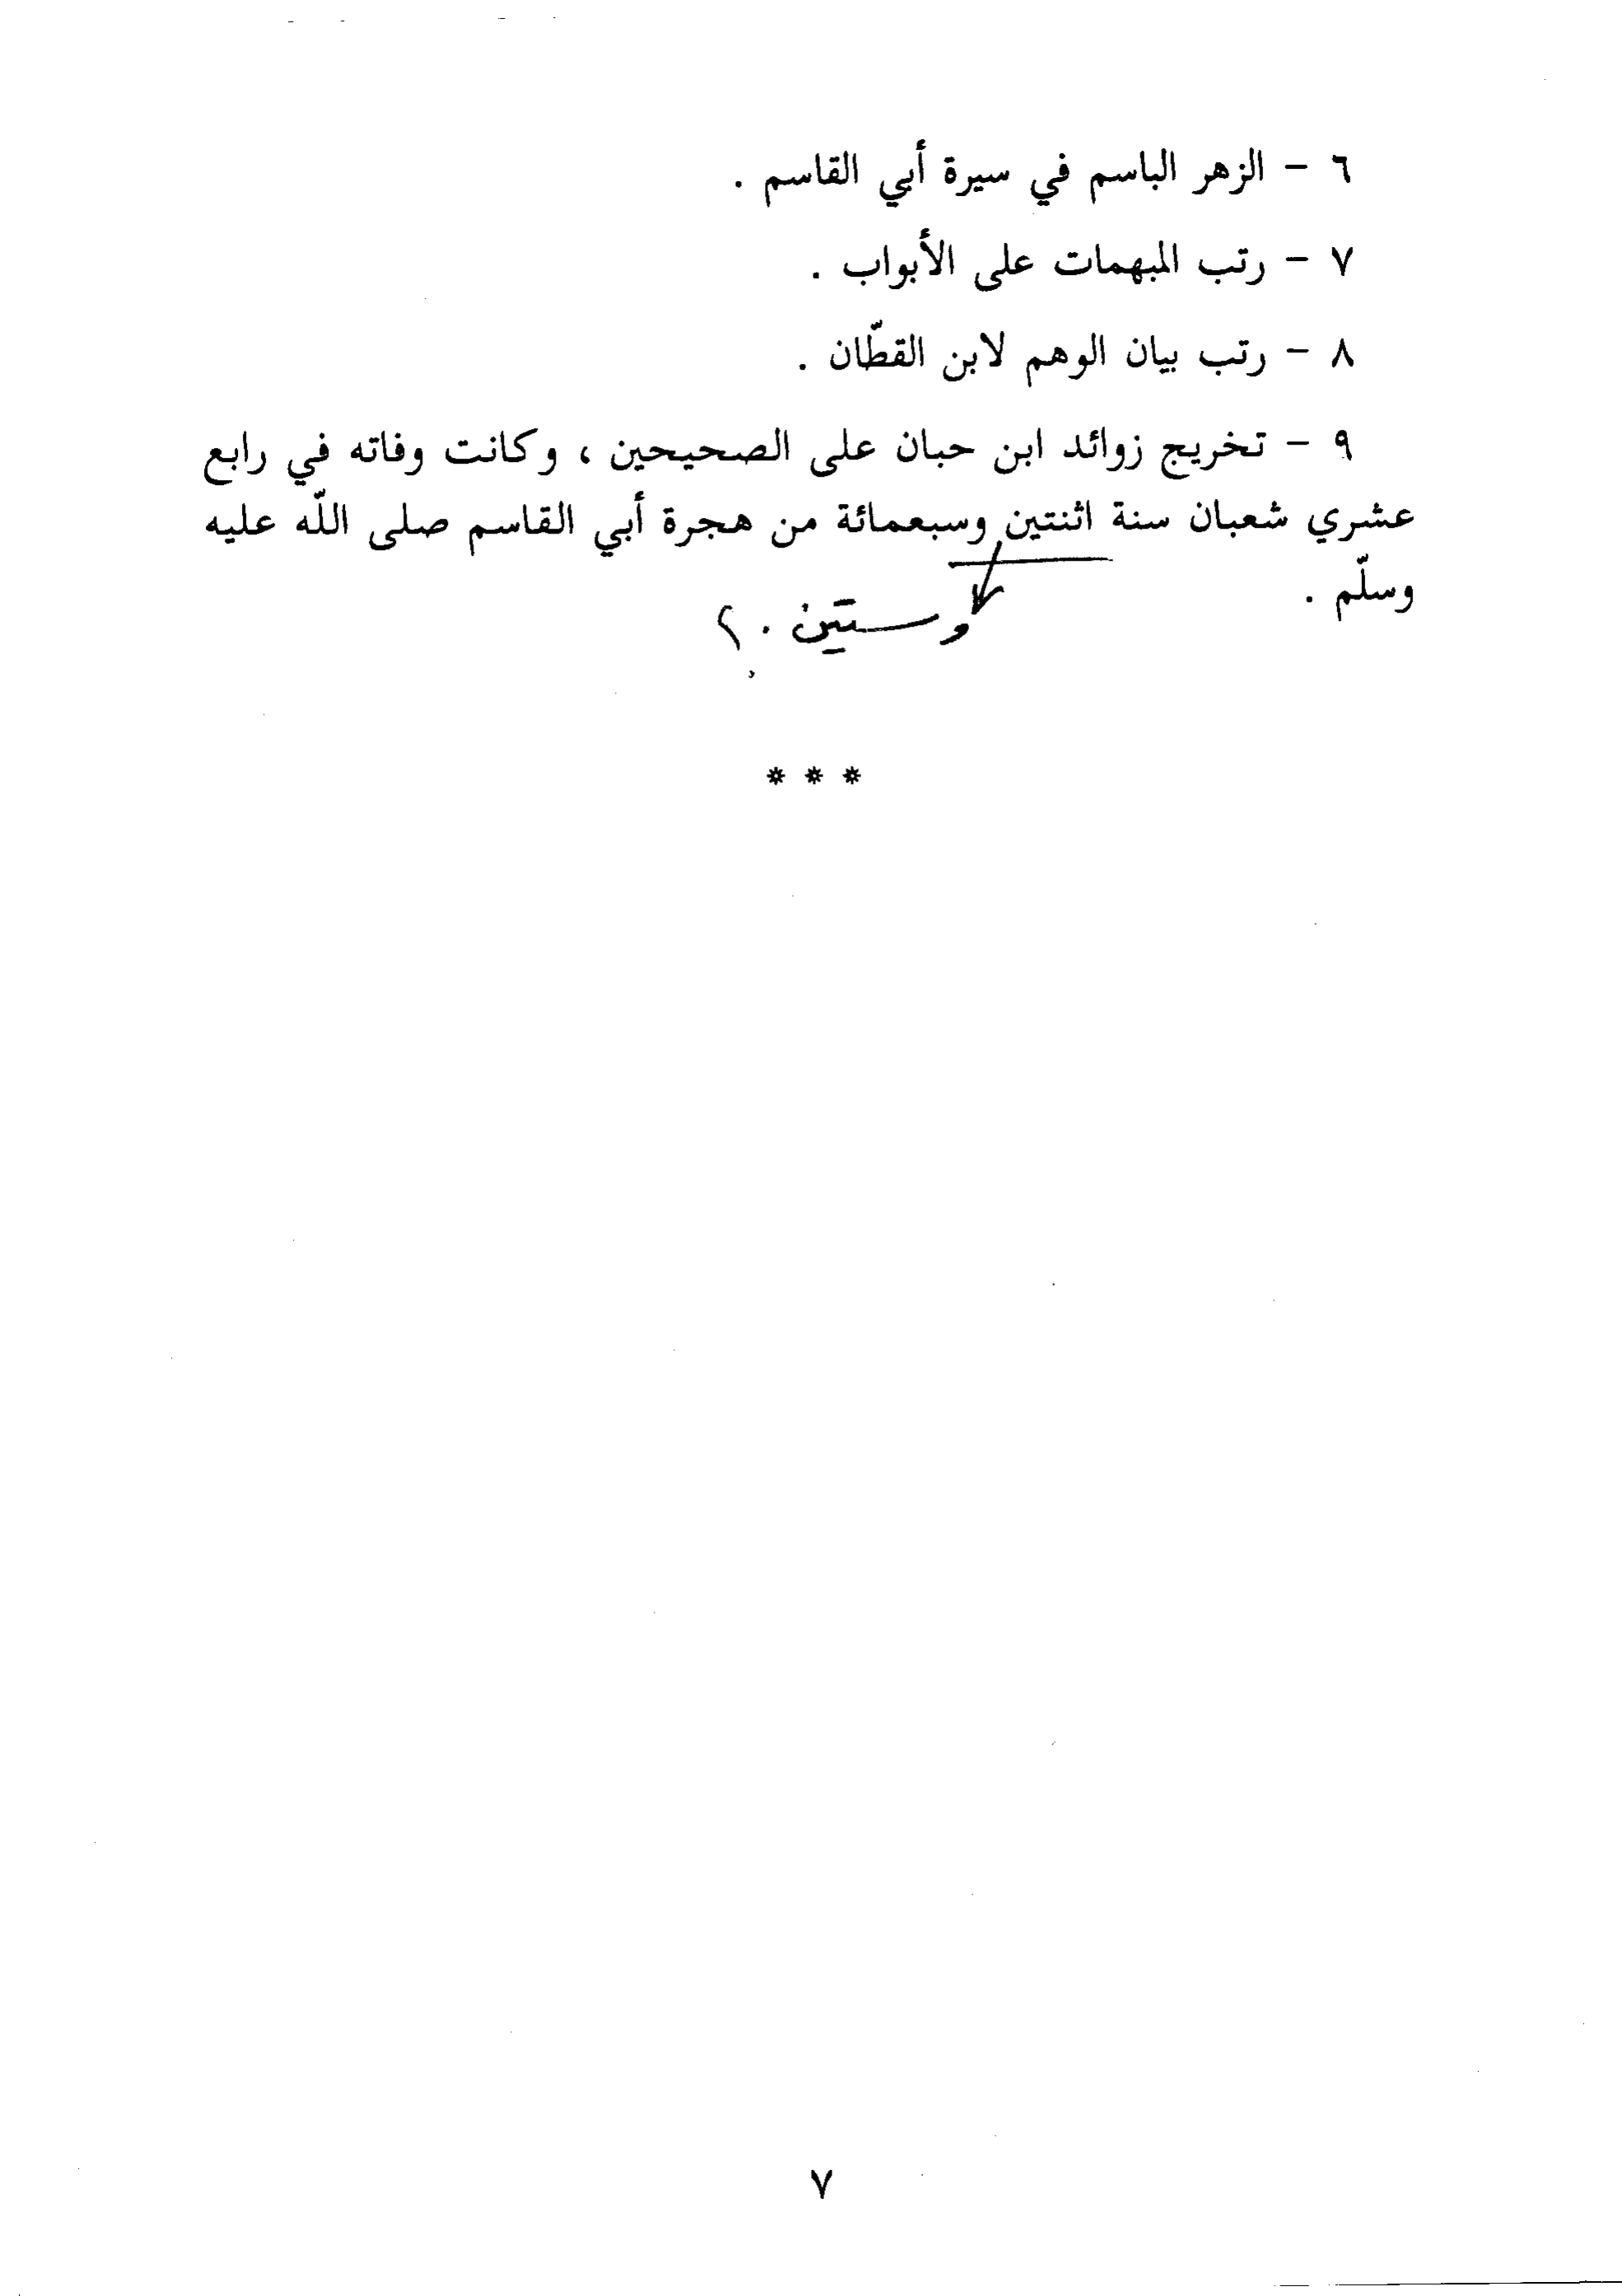 ٦ - الزهر الباسم في سيرة أبي القاسم .
٧ - رتب المبهمات على الأبواب .
٨ - رتب بيان الوهم لابن القطّان .
٩ - تخريج زوائد ابن حبان على الصحيحين ، وكانت وفاته في رابع
عشري شعبان سنة اثنتين وسبعمائة من هجرة أبي القاسم صلى اللّه عليه
وسلّم .
وستين .
* * *
٧